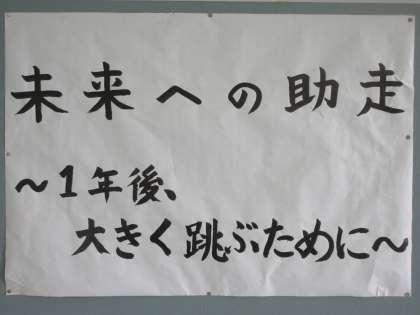 未来への助走
～1年後、
大きく跳ぶために～